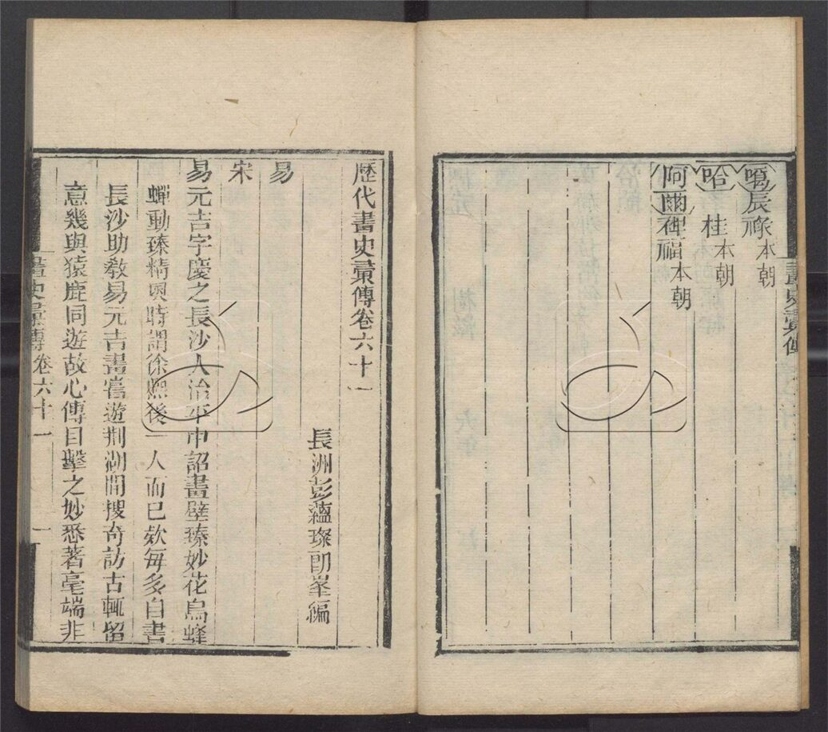 鳴辰祿本朝
哈 桂本朝
阿爾稗福本朝
歷代畫史彙傳卷六十一
長洲彭蘊璨朗峯編
易
宋
易元吉字慶之長沙人治平中詔畫壁臻妙花鳥蜂
蟬動臻精奧時謂徐熙後一人而已欵每多自書
長沙助教易元吉畫嘗遊荆湖間搜奇訪古輒留
意幾與猿鹿同遊故心傳目擊之妙悉著毫端非
畫史彙傳卷六十一
一